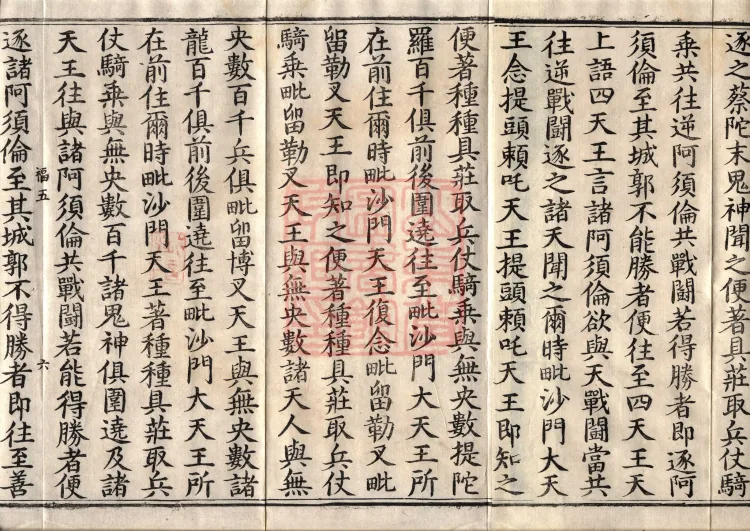 逐之蔡陀末鬼神聞之便著具莊取兵仗騎
乘共往逆阿須倫共戰鬪若得勝者即逐阿
須倫至其城郭不能勝者便往至四天王天
上語四天王言諸阿須倫欲與天戰鬪當共
往逆戰鬪逐之諸天聞之爾時毗沙門大天
王念提頭賴吒天王提頭賴吒天王即知之
便著種種具莊取兵仗騎乘與無央數提陀
羅百千俱前後圍遶往至毗沙門大天王所
在前住爾時毗沙門天王復念毗留勒叉毗
留勒叉天王即知之便著種種具莊取兵仗
騎乘毗留勒叉天王與無央數諸天人與無
央數百千兵俱毗留博叉天王與無央數諸
龍百千俱前後圍遶往至毗沙門大天王所
在前住爾時毗沙門天王著種種具莊取兵
仗騎乘與無央數百千諸鬼神俱圍遶及諸
天王往與諸阿須倫共戰鬪若能得勝者便
福五 六
逐諸阿須倫至其城郭不得勝者即往至善